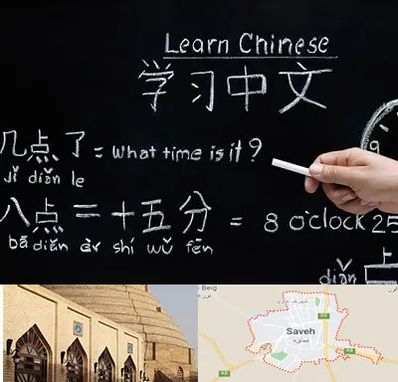 Learn Chinese
学习中文
9
几点了 = What time is it?
Jǐ diǎn le
八点二十五分 = 8 o'clock 25
bā diǎn èr shí wǔ fēn
diǎn
Beig
Saveh
ساوه